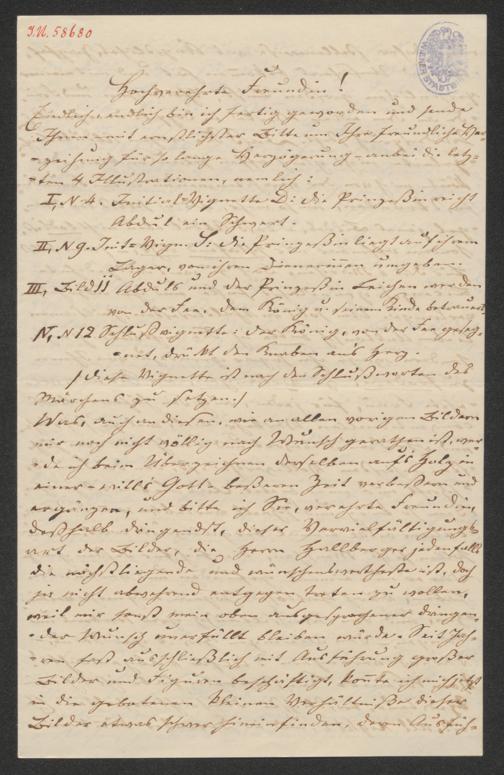 I.N. 58680
Hochverehrte Freundin!
Endlich, endlich bin ich fertig geworden und sende
Ihnen mit ernstlichster Bitte um Ihre freundliche Ver-
zeihung für so lange Verzögerung anbei die letz-
ten 4 Illustrationen, nemlich:
I, N 4. Initial-Vignette D: die Prinzeßin reicht
Abdul ein Schwert.
II, N 9. Init= Vign. S: die Prinzeßin liegt auf ihrem
Lager, von ihren Dienerinnen umgeben.
III, Bild 11 Abduls und der Prinzeßin Leichen werden
von der Fee, dem König u seinem Kinde betrauert
IV, N 12 Schlußvignette: der König, von der Fee geseg-
net, drückt den Knaben an's Herz.
/diese Vignette ist nach den Schlußworten des
Märchens zu setzen./
Was, auch an diesen, wie an allen vorigen Bildern
mir noch nicht völlig nach Wunsch gerathen ist, wer-
de ich beim Überzeichnen derselben auf's Holz in
einer - will's Gott - beßeren Zeit verbessern und
ergänzen, und bitte ich Sie, verehrte Freundin,
deßhalb dringendst, dieser Vervielfältigungs
art der Bilder, die Herrn Hallberger jedenfalls
die nächstliegende und wünschenswertheste ist, doch
ja nicht abwehrend entgegen treten zu wollen,
weil mir sonst mein oben ausgesprochener dringen-
der Wunsch unerfüllt bleiben würde. Seit Jah-
ren fast ausschließlich mit Ausführung großer
Bilder und Figuren beschäftigt, konnte ich mich jetzt
in die gebotenen kleinen Verhältniße dieser
Bilder etwas schwer hineinfinden, deren Ausfüh-